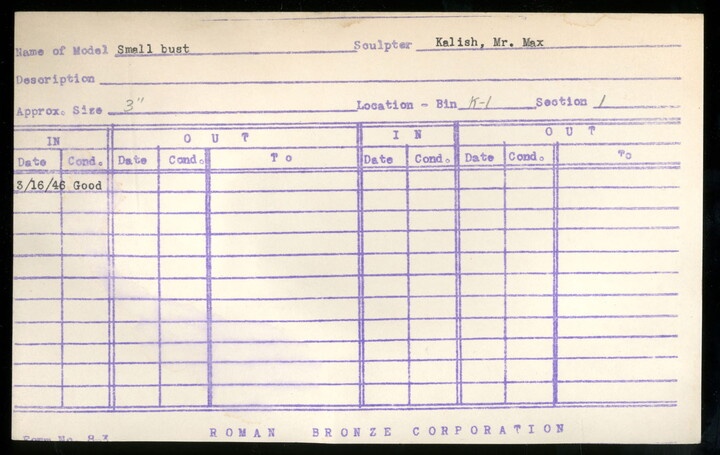 Name of Model Small bust Sculptor Kalish, Mr. Max
Description
Approx. Size 3" Location - Bin K-1 Section 1
IN OUT IN OUT
Date Cond. Date Cond. To Date Cond. Date Cond. To
3/16/46 Good
Form No. 8-3 ROMAN BRONZE CORPORATION